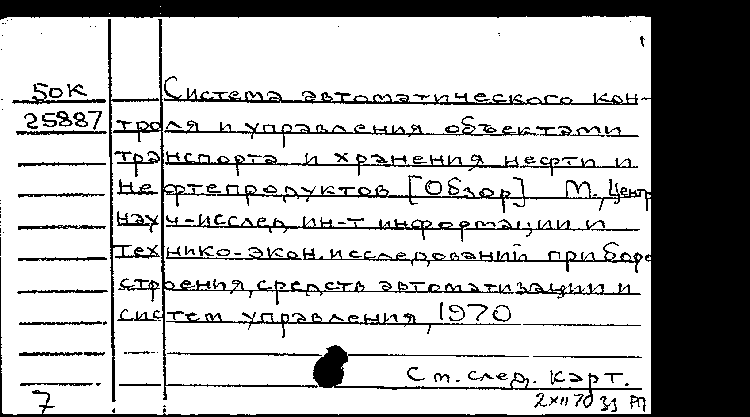 50К Система автоматического кон-
25887 троля и управления объектами
транспорта и хранения нефти и
нефтепродуктов [Обзор] М., Центр
науч-исслед. ин-т информации и
технико-экон. исследований приборо
строения, средств автоматизации и
систем управления, 1970
См. след. карт.
7 2 XII 70